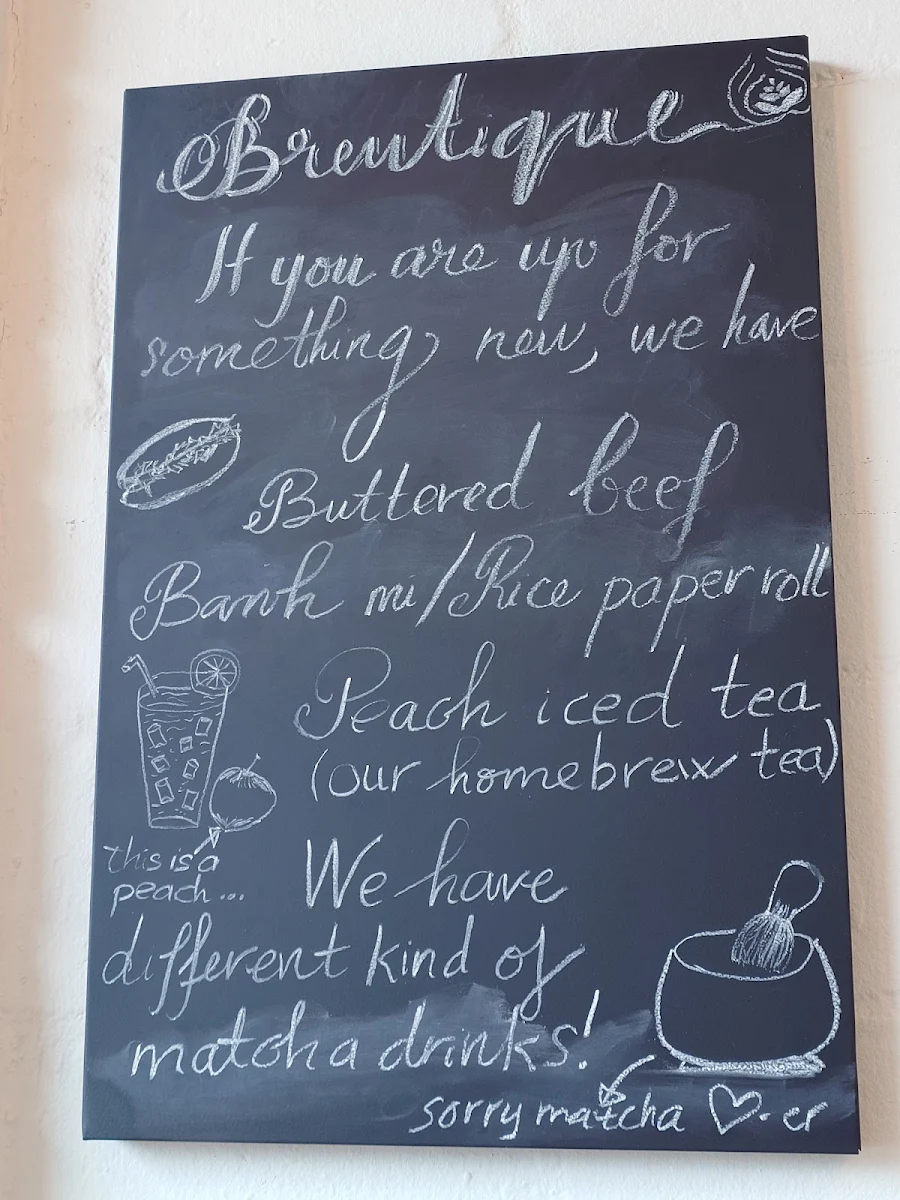 Brewtique
If you are up for
something new, we have
Buttered beef
Banh mi/Rice paper roll
Peach iced tea
(our homebrew tea)
this is a
peach...
We have
different kind of
matcha drinks!
sorry matcha ♡-er